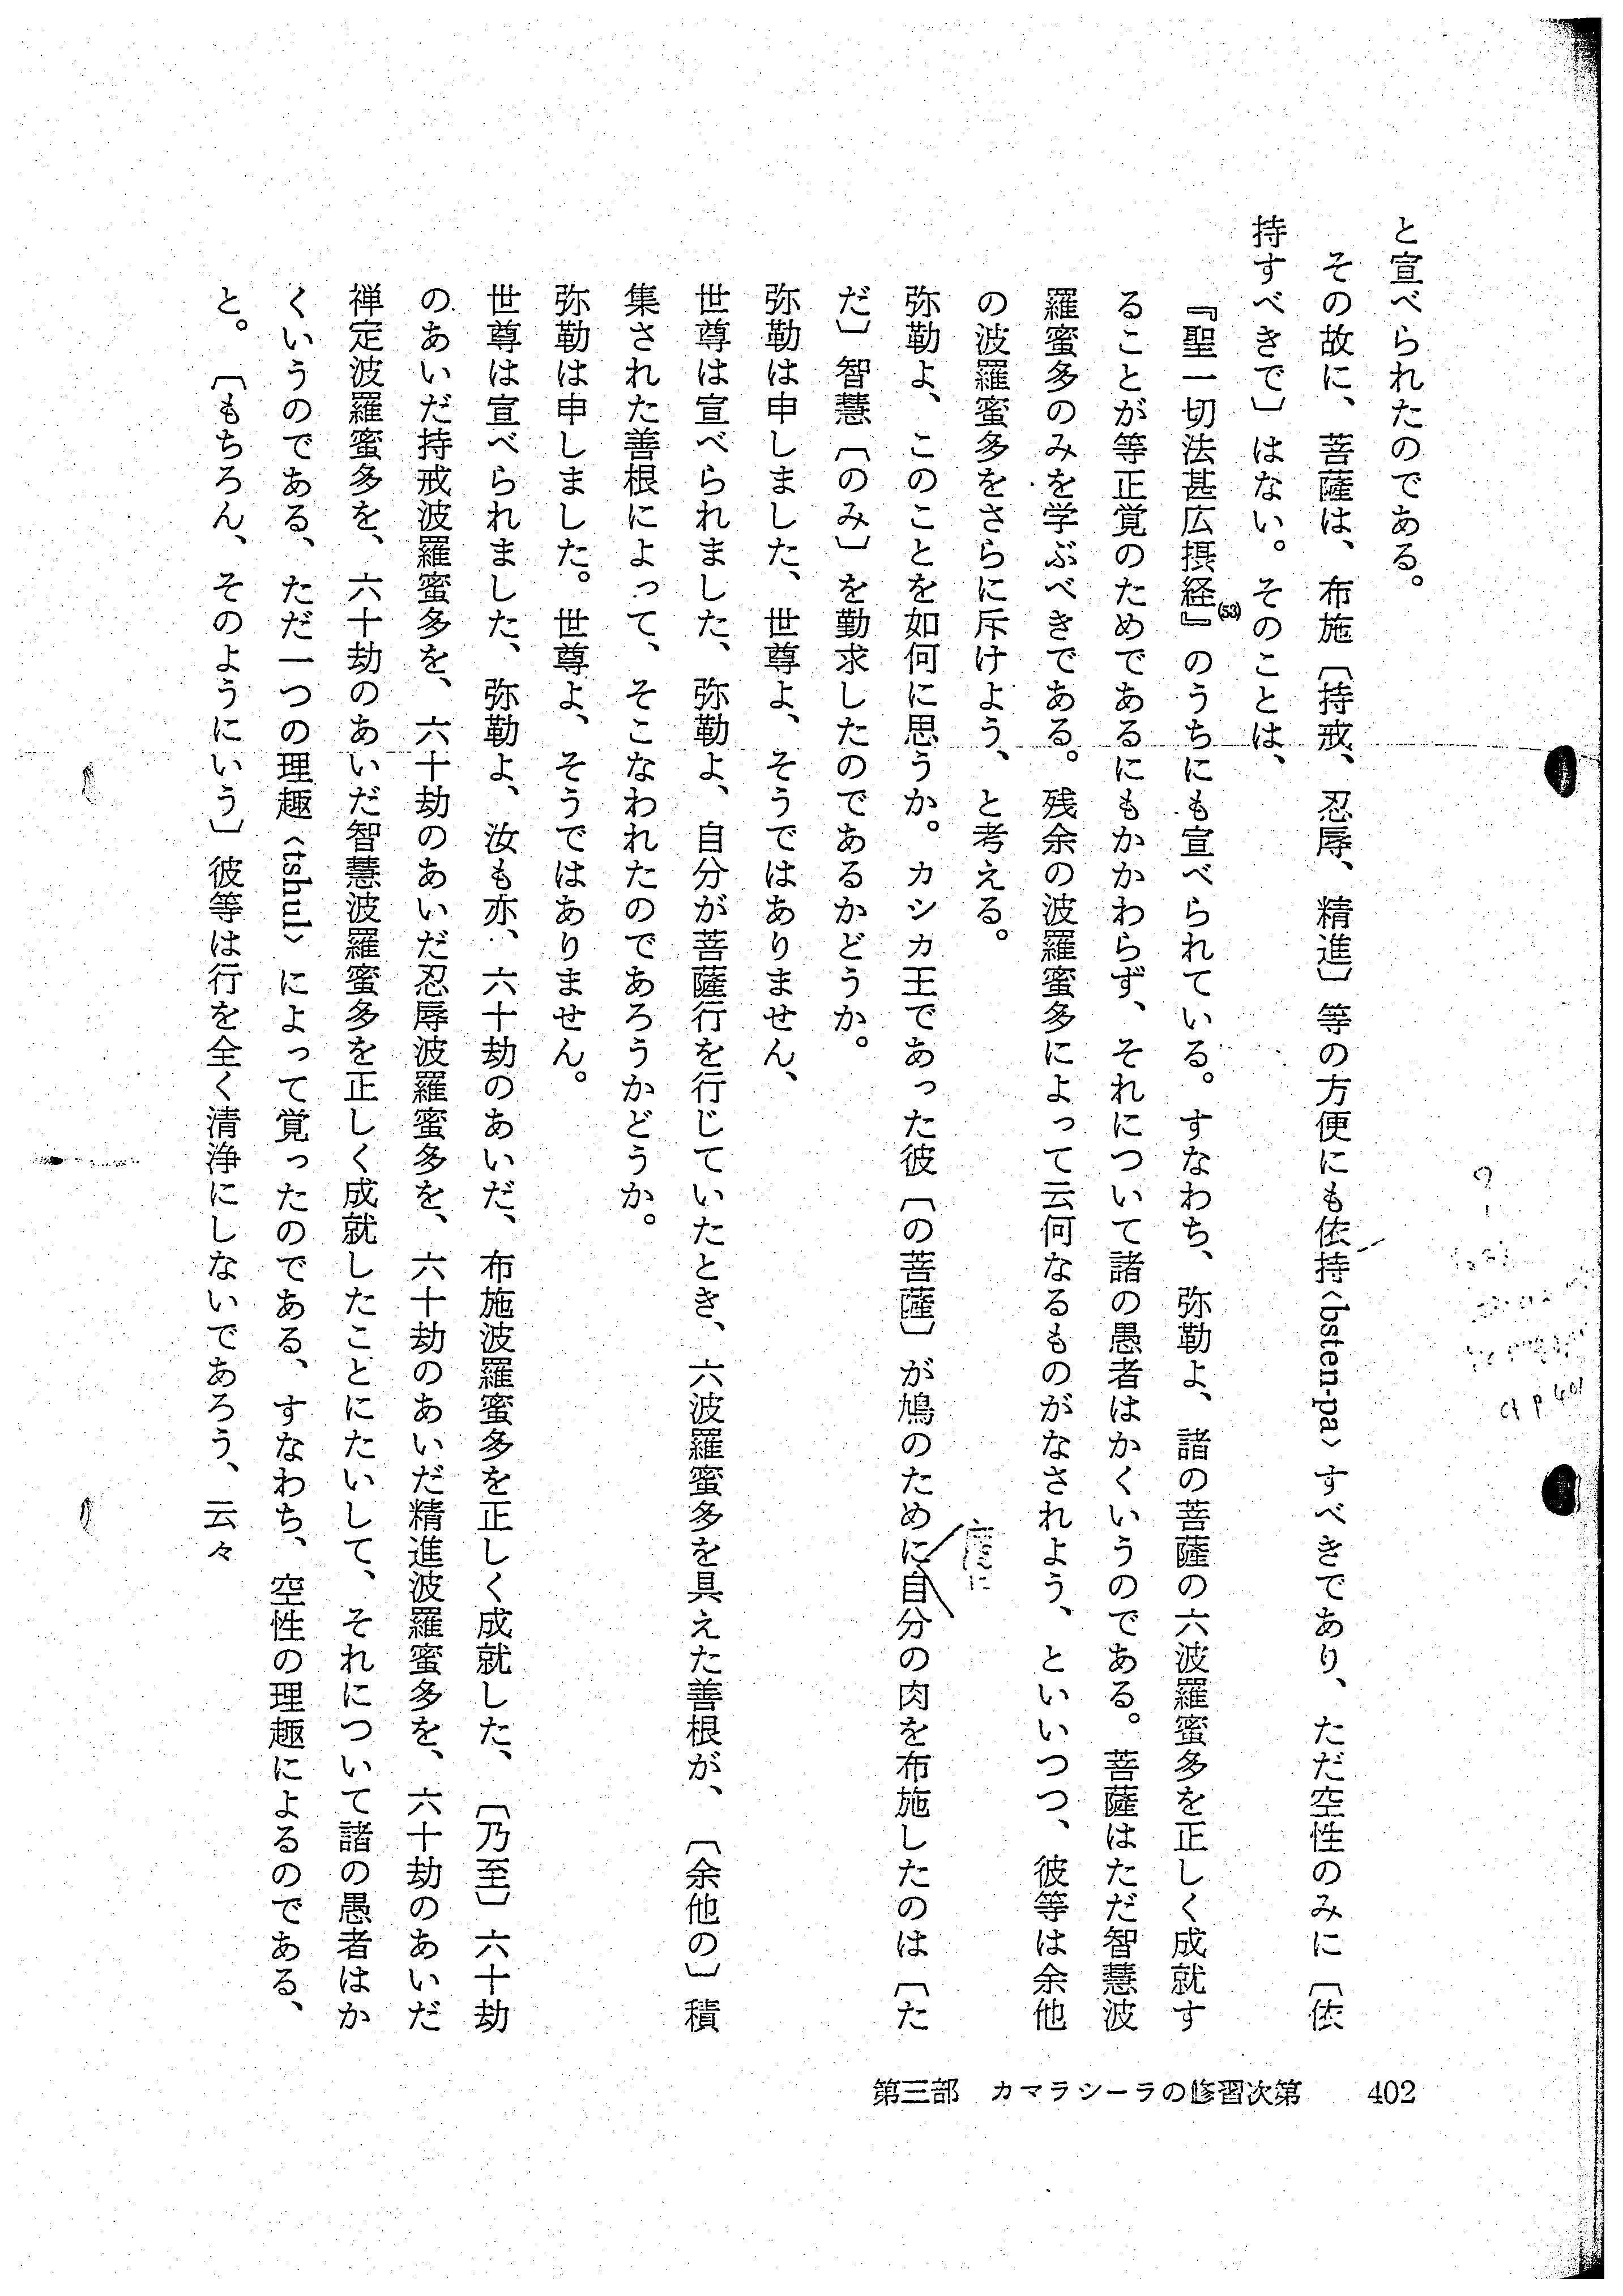 と宣べられたのである。
その故に、菩薩は、布施〔持戒、忍辱、精進〕等の方便にも依持〈bsten-pa〉すべきであり、ただ空性のみに〔依
持すべきで〕はない。そのことは、
『聖一切法甚広摂経』(53)のうちにも宣べられている。すなわち、弥勒よ、諸の菩薩の六波羅蜜多を正しく成就す
ることが等正覚のためであるにもかかわらず、それについて諸の愚者はかくいうのである。菩薩はただ智慧波
羅蜜多のみを学ぶべきである。残余の波羅蜜多によって云何なるものがなされよう、といいつつ、彼等は余他
の波羅蜜多をさらに斥けよう、と考える。
弥勒よ、このことを如何に思うか。カシカ王であった彼〔の菩薩〕が鳩のために自分の肉を布施したのは〔た
だ〕智慧〔のみ〕を勤求したのであるかどうか。
弥勒は申しました、世尊よ、そうではありません、
世尊は宣べられました、弥勒よ、自分が菩薩行を行じていたとき、六波羅蜜多を具えた善根が、〔余他の〕積
集された善根によって、そこなわれたのであろうかどうか。
弥勒は申しました。世尊よ、そうではありません。
世尊は宣べられました、弥勒よ、汝も亦、六十劫のあいだ、布施波羅蜜多を正しく成就した、〔乃至〕六十劫
のあいだ持戒波羅蜜多を、六十劫のあいだ忍辱波羅蜜多を、六十劫のあいだ精進波羅蜜多を、六十劫のあいだ
禅定波羅蜜多を、六十劫のあいだ智慧波羅蜜多を正しく成就したことにたいして、それについて諸の愚者はか
くいうのである、ただ一つの理趣〈tshul〉によって覚ったのである、すなわち、空性の理趣によるのである、
と。〔もちろん、そのようにいう〕彼等は行を全く清浄にしないであろう、云々
第三部 カマラシーラの修習次第 402
cf p 401